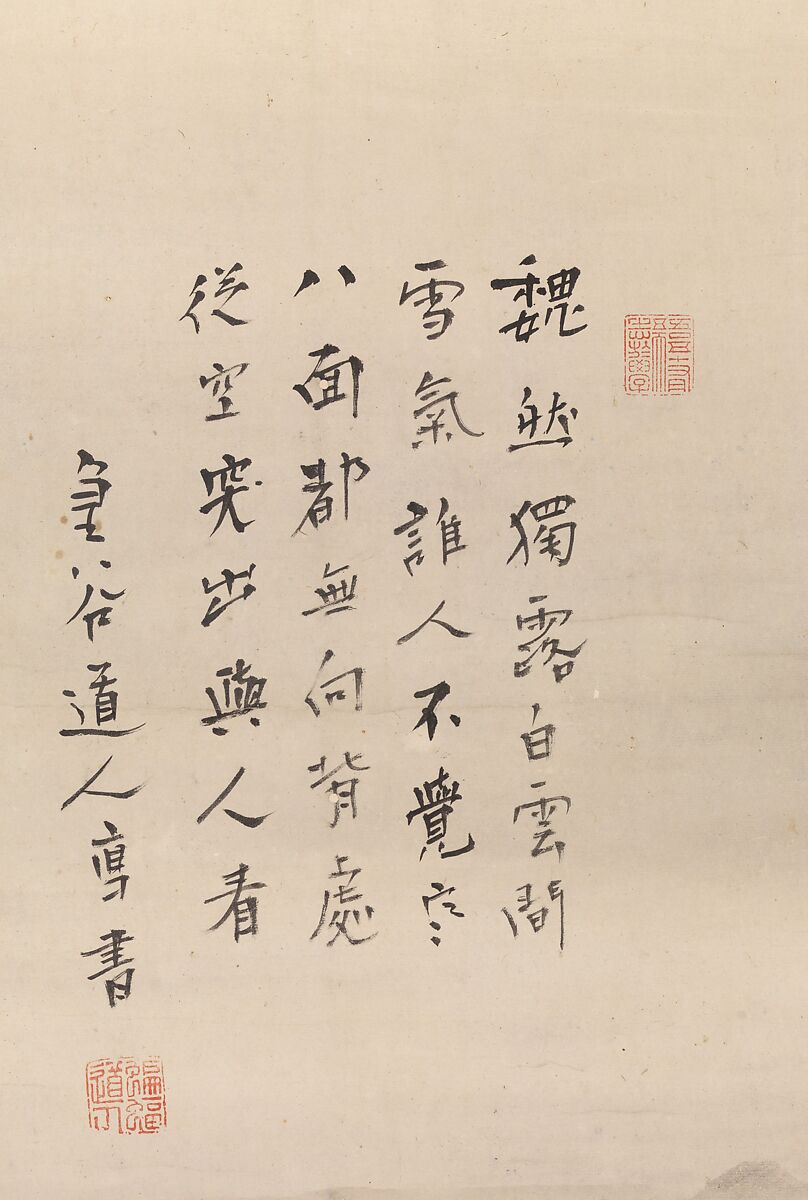 魏然獨露白雲間
雪氣誰人不覺寒
八面都無向背處
從空突出與人看
谷道人書
蝙蝠道人